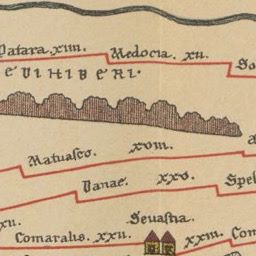 Patara. xiiii. Medocia. xii. So
EVIHIBERI.
Matuasco. xviii.
Danae. xxv. Spel
xii. Sevastia.
Comaralis. xxii. xxiii. Com